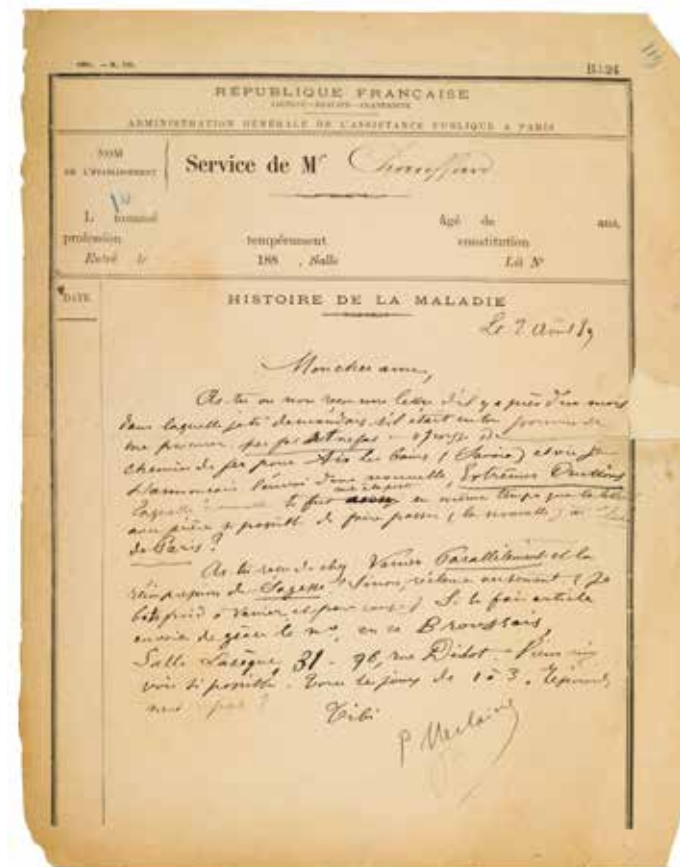 B.124
RÉPUBLIQUE FRANÇAISE
LIBERTÉ—ÉGALITÉ—FRATERNITÉ
ADMINISTRATION GÉNÉRALE DE L'ASSISTANCE PUBLIQUE A PARIS
NOM
DE L'ÉTABLISSEMENT
Service de Mr Chauffard
L nommé âgé de ans,
profession tempérament constitution
Entré le 188 , Salle Lit No
DATE
HISTOIRE DE LA MALADIE
Le 2 Août 89
Mon cher ami,
As-tu ou non reçu une lettre d'il y a près d'un mois
dans laquelle je te demandais s'il était en ton pouvoir de
me procurer per fas et nefas
chemin de fer pour Aix les Bains (Savoie) et où je
t'annonçais l'envoi d'une nouvelle, Extrêmes Onctions
laquelle te fut en même temps que la lettre
avec prière si possible de faire passer (la nouvelle)
de Paris?
As-tu reçu de chez Vanier Parallèlement et la
réimpression de Sagesse? Sinon, réclame (Je
bats froid à Vanier et pour cause) Si tu fais article
envoie de grâce le no, en ce Broussais,
Salle Lasègue, 31 - 96, rue Didot. Viens m'y
voir si possible. Tous les jours de 1 à 3. Réponds
Tibi
P Verlaine